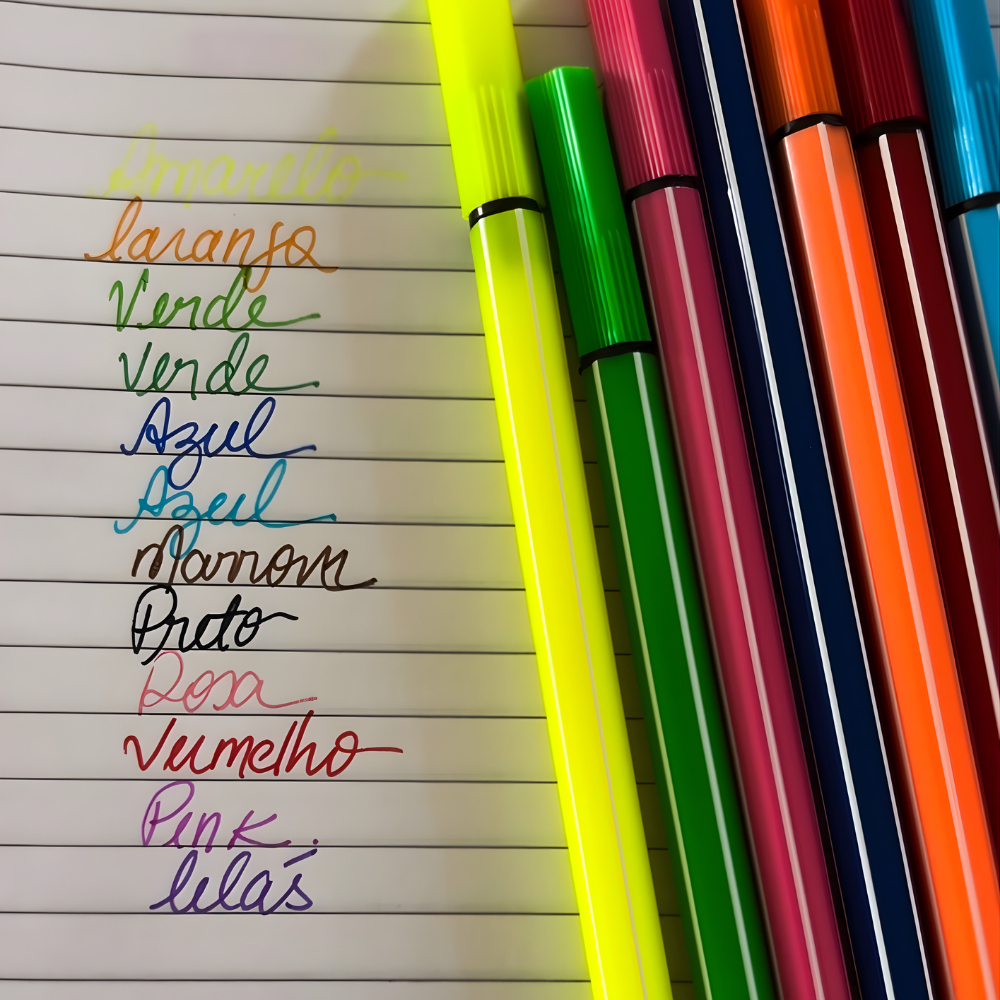 Amarelo
laranja
Verde
Verde
Azul
Azul
Marrom
Preto
Rosa
Vermelho
Pink.
lilás